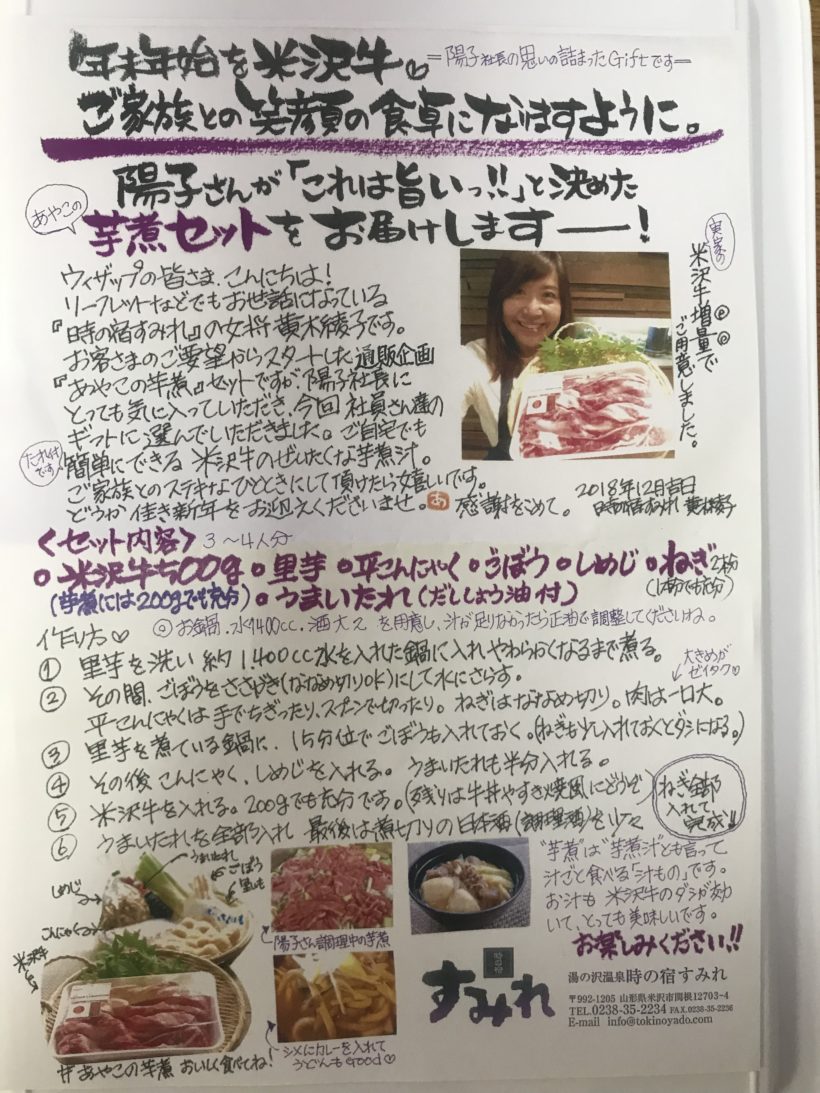 年末年始を米沢牛♡
＝陽子社長の思いの詰まったGiftです＝
ご家族との笑顔の食卓になりますように。
陽子さんが「これは旨いっ!!」と決めた
あやこの
芋煮セットをお届けします——！
ウィザップの皆さま、こんにちは！
リーフレットなどでもお世話になっている
『時の宿すみれ』の女将 黄木綾子です。
お客さまのご要望からスタートした通販企画
『あやこの芋煮』セットですが、陽子社長に
とっても気に入っていただき、今回 社員さん達の
ギフトに選んでいただきました。ご自宅でも
たれ付です
簡単にできる 米沢牛のぜいたくな芋煮汁。
ご家族とのステキなひとときにして頂けたら嬉しいです。
どうか佳き新年をお迎えくださいませ。
あ
感謝をこめて。
2018年12月吉日
時の宿すみれ 黄木綾子
実家の
米沢牛増量で
ご用意しました。
＜セット内容＞ 3〜4人分
○米沢牛500g ○里芋 ○平こんにゃく ○ごぼう ○しめじ ○ねぎ2本分
(芋煮には200gでも充分) ○うまいたれ(だししょう油付)
(1本分でも充分)
作り方♡
◎お鍋、水1400cc、酒大2 を用意し、汁が足りなかったら正油で調整してくださいね。
① 里芋を洗い 約1400cc水を入れた鍋に入れ やわらかくなるまで煮る。
② その間、ごぼうをささがき(ななめ切りOK)にして水にさらす。
大きめがゼイタク♡
平こんにゃくは 手でちぎったり、スプーンで切ったり。 ねぎはななめ切り。 肉は一口大。
③ 里芋を煮ている鍋に、15分位で ごぼうも入れておく。(ねぎも少し入れておくとダシになる。)
④ その後 こんにゃく、しめじを入れる。 うまいたれも半分入れる。
⑤ 米沢牛を入れる。200gでも充分です。(残りは牛丼やすき焼風にどうぞ)
⑥ うまいたれを全部入れ 最後は煮切りの日本酒(調理酒)を少々
ねぎ全部
入れて
完成!!
うまいたれ
ごぼう
里いも
しめじ
こんにゃく
米沢牛
陽子さん調理中の芋煮
シメにカレーを入れて
うどんもGood♡
#あやこの芋煮 おいしく食べてね！
"芋煮"は"芋煮汁"とも言って
汁ごと食べる「汁もの」です。
お汁も 米沢牛のダシが効
いて、とっても美味しいです。
お楽しみください!!
時の宿
すみれ
湯の沢温泉 時の宿すみれ
〒992-1205 山形県米沢市関根12703-4
TEL.0238-35-2234 FAX.0238-35-2236
E-mail info@tokinoyado.com